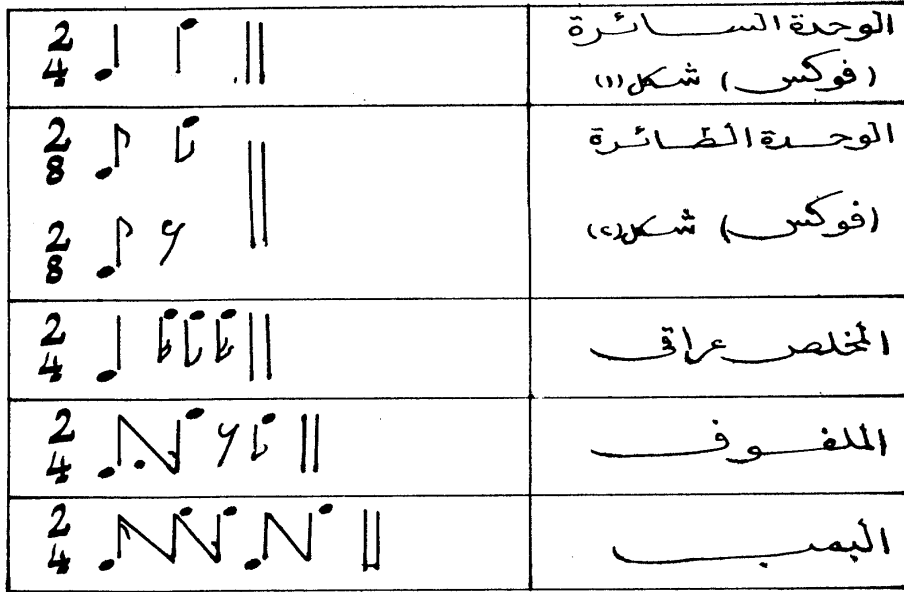 الوحدة السائرة
(فوكس) شكل (١)
2
4
الوحدة الطائرة
2
8
(فوكس) شكل (٢)
2
8
المخلص عراقي
2
4
الملفوف
2
4
البمب
2
4